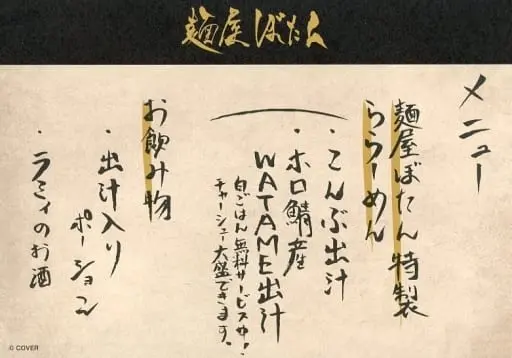 麺屋ぼたん
メニュー
麺屋ぼたん特製
ららーめん
・こんぶ出汁
・ホロ鯖産
WATAME出汁
白ごはん無料サービス中!
チャーシュー大盛できます。
お飲み物
・出汁入り
ポーション
・ラミィのお酒
© COVER